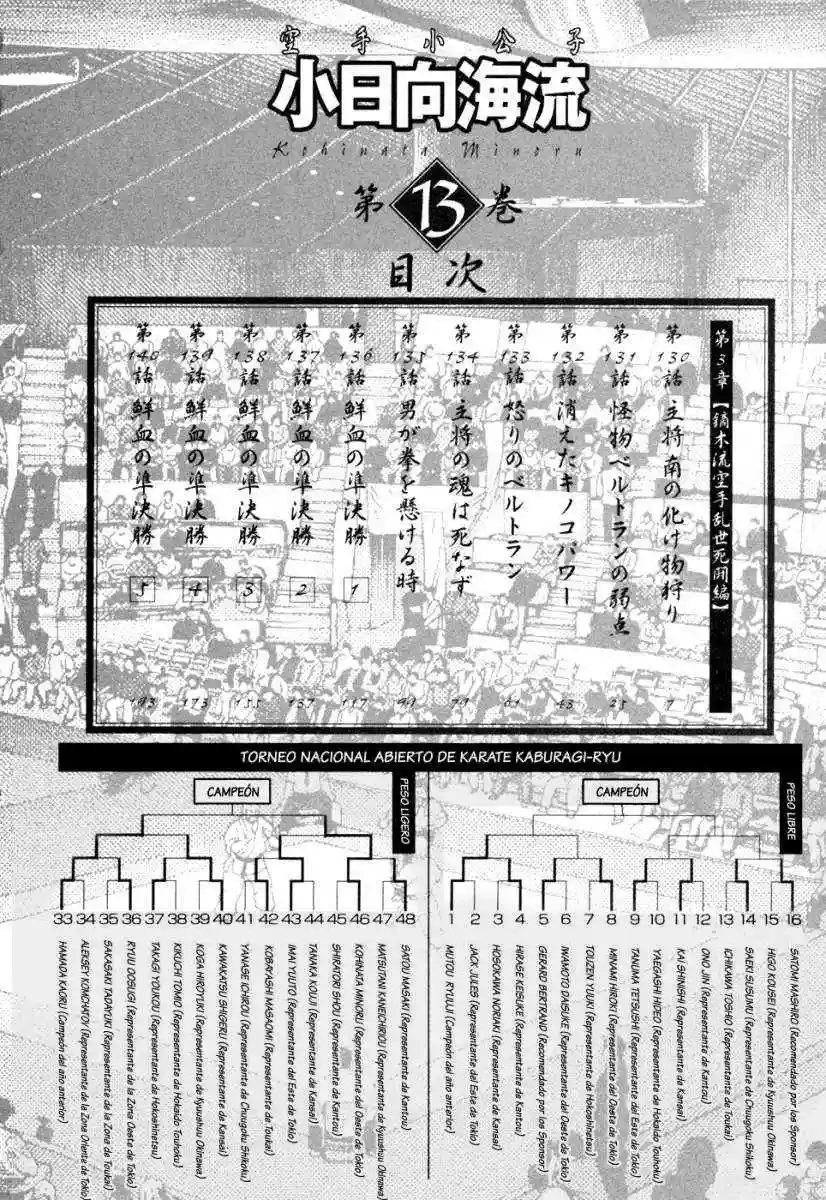 空手小公子
小日向海流
Kohinata Minoru
第13巻
目次
第3章【鏑木流空手乱世死闘編】
第130話 主将南の化け物狩り 7
第131話 怪物ベルトランの弱点 25
第132話 消えたキノコパワー 43
第133話 怒りのベルトラン 61
第134話 主将の魂は死なず 79
第135話 男が拳を懸ける時 99
第136話 鮮血の準決勝 1 117
第137話 鮮血の準決勝 2 137
第138話 鮮血の準決勝 3 155
第139話 鮮血の準決勝 4 173
第140話 鮮血の準決勝 5 193
TORNEO NACIONAL ABIERTO DE KARATE KABURAGI-RYU
PESO LIGERO
CAMPEÓN
33 HAMADA KAORU (Campeón del año anterior)
34 ALEKSEY KOMCHATOY (Representante de la Zona Oriente de Tokio)
35 SAKASAKI TADAYUKI (Representante de la Zona de Toukai)
36 RYUU OOSUGI (Representante de la Zona Oeste de Tokio)
37 TAKAGI YOUKOU (Representante de Hokoshinetsu)
38 KIKUCHI TOMIO (Representante de Hokaido Touhoku)
39 KOGA HIROYUKI (Representante de Kyuushuu Okinawa)
40 KAWAKATSU SHIGERU (Representante de Kansai)
41 YANASE ICHIROU (Representante de Chuugoku Shikoku)
42 KOBAYASHI MASAOMI (Representante de Toukai)
43 IMAI YUUTO (Representante del Este de Tokio)
44 TANAKA KOUJI (Representante de Kansai)
45 SHIRATORI SHOU (Representante de Kantou)
46 KOHINATA MINORU (Representante del Oeste de Tokio)
47 MATSUTANI KANEICHIROU (Representante de Kyuushuu Okinawa)
48 SATOU MASAKI (Representante de Kantou)
PESO LIBRE
CAMPEÓN
1 MUTOU RYUUJI (Campeón del año anterior)
2 JACK JULES (Representante del Este de Tokio)
3 HOSOKAWA NORIAKI (Representante de Kansai)
4 HIRASE KEISUKE (Representante de Kantou)
5 GERARD BERTRAND (Recomendado por los Sponsor)
6 IWAMOTO DAISUKE (Representante del Oeste de Tokio)
7 TOUZEN YUUKI (Representante de Hokoshinetsu)
8 MINAMI HIROKI (Representante del Oeste de Tokio)
9 TANUMA TETSUSHI (Representante del Este de Tokio)
10 YAEGASHI HIDEO (Representante de Hokaido Touhoku)
11 KAI SHINISHI (Representante de Kansai)
12 ONSI JIN (Representante de Kantou)
13 ICHIKAWA TOSHIO (Representante de Toukai)
14 SAEKI SUSUMU (Representante de Chuugoku Shikoku)
15 HIGO KOUSEI (Representante de Kyuushuu Okinawa)
16 SATOMI MASHIRO (Recomendado por los Sponsor)